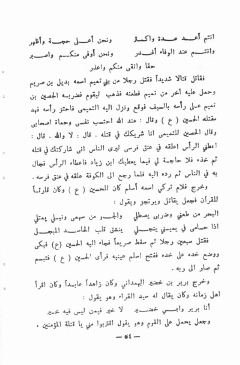 انتم أعد عدة وأكثر ونحن أعلى حجة وأظهر
وانتم عند الوفاء أغدر ونحن أوفى منكم وأصبر
حقا وأتقى منكم وأعذر
فقاتل قتالا شديداً فقتل رجلا من بني تميم اسمه بديل بن صريم
وحمل عليه آخر من تميم فطعنه فذهب ليقوم فضربه الحصين بن
تميم على رأسه بالسيف فوقع ونزل اليه التميمي فاحتز رأسه فهد
مقتله الحسين (ع) وقال : عند الله احتسب نفسي وحماة أصحابي
وقال الحصين للتميمي انا شريكك في قتله . قال : لا والله . قال :
اعطني الرأس اعلقه في عنق فرسي ليرى الناس اني شاركتك في قتله
ثم خذه فلا حاجة لي فيما يعطيك ابن زياد فاعطاه الرأس فجال
به في الناس ثم رده اليه فلما رجع الى الكوفة علقه في عنق فرسه.
وخرج غلام تركي اسمه أسلم كان للحسين (ع) وكان قارئاً
للقرآن فجعل يقاتل ويرتجز ويقول :
البحر من طعني وضربي يصطلي والجو من سهمي ونبلي يمتلي
اذا حسامي في يميني ينجلي ينشق قلب الحاسد المبجل
فقتل سبعين رجلا ثم سقط صريعاً فجاء اليه الحسين (ع) فبكى
ووضع خده على خده ففتح أسلم عينيه فرأى الحسين (ع) فتبسم
ثم صار الى ربه .
وخرج برير بن خضير الهمداني وكان زاهداً عابداً وكان اقرأ
اهل زمانه وكان يقال له سيد القراء وهو يقول :
أنا برير وأبي خضير لا خير فيمن ليس فيه خير
وجعل يحمل على القوم وهو يقول اقتربوا مني يا قتلة المؤمنين .